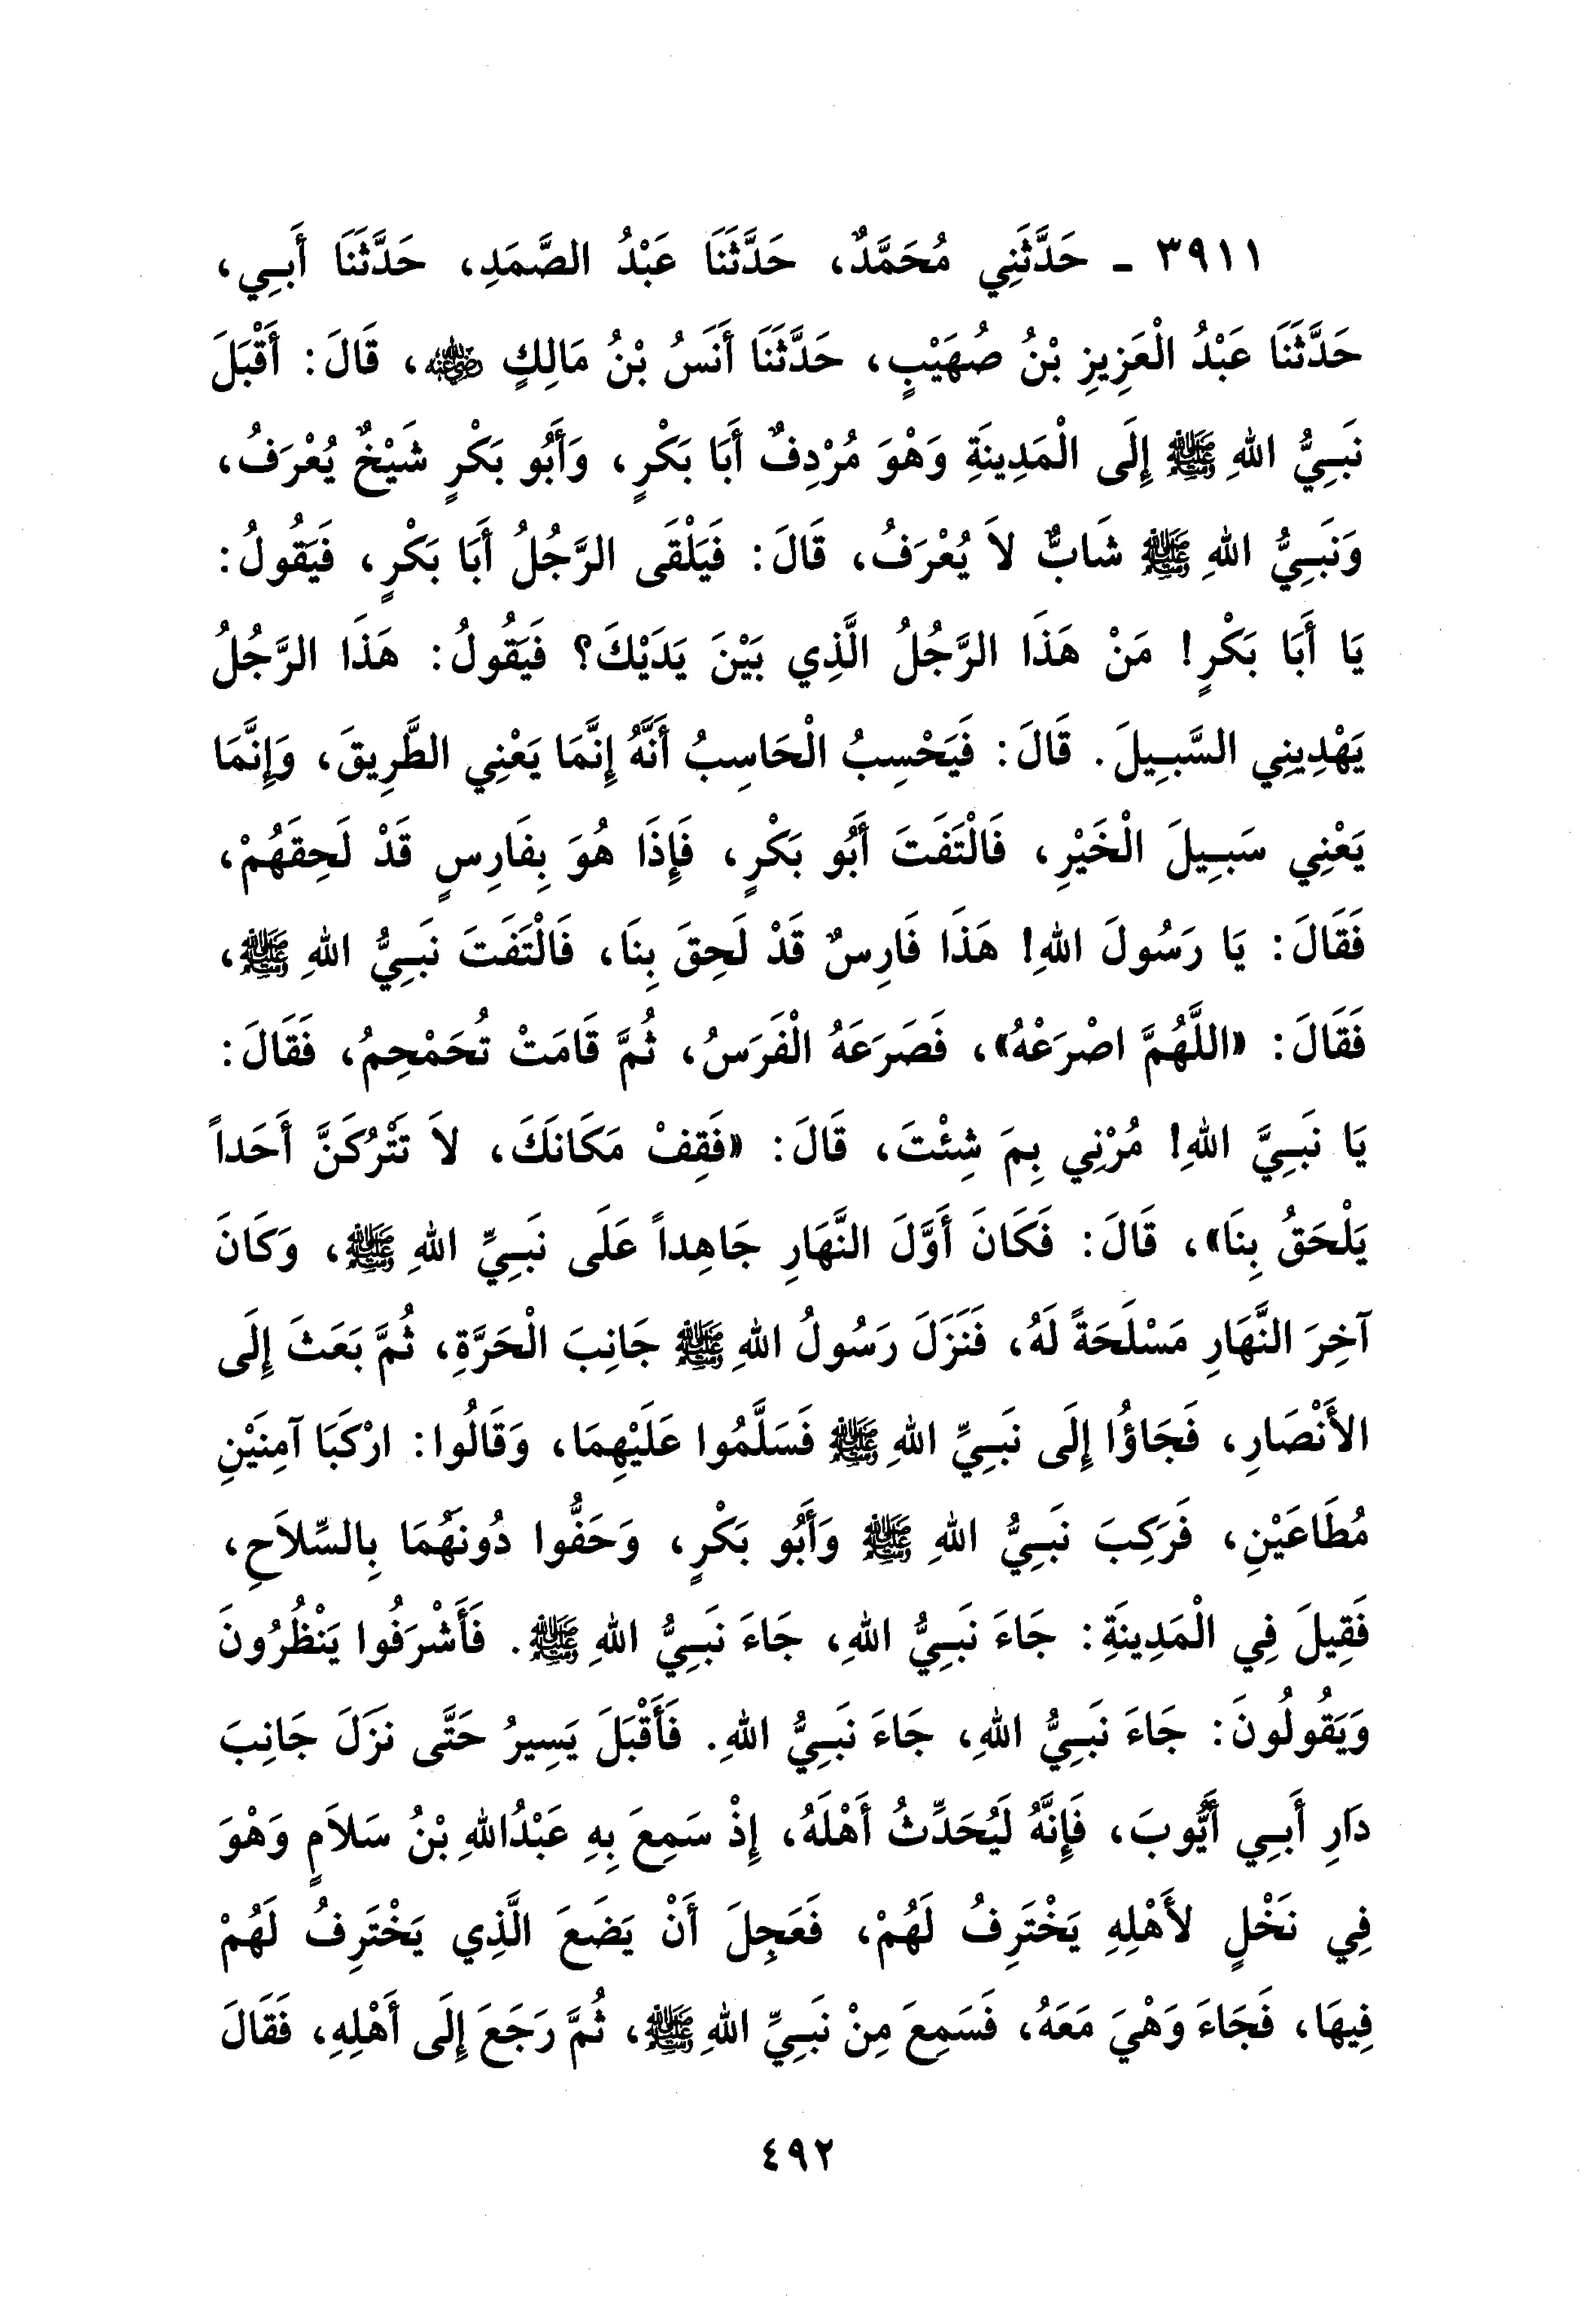 ٣٩١١ ـ حَدَّثَنِي مُحَمَّدٌ، حَدَّثَنَا عَبْدُ الصَّمَدِ، حَدَّثَنَا أَبِي،
حَدَّثَنَا عَبْدُ الْعَزِيزِ بْنُ صُهَيْبٍ، حَدَّثَنَا أَنَسُ بْنُ مَالِكٍ رضي الله عنه، قَالَ: أَقْبَلَ
نَبِيُّ اللهِ ﷺ إِلَى الْمَدِينَةِ وَهْوَ مُرْدِفٌ أَبَا بَكْرٍ، وَأَبُو بَكْرٍ شَيْخٌ يُعْرَفُ،
وَنَبِيُّ اللهِ ﷺ شَابٌّ لاَ يُعْرَفُ، قَالَ: فَيَلْقَى الرَّجُلُ أَبَا بَكْرٍ، فَيَقُولُ:
يَا أَبَا بَكْرٍ! مَنْ هَذَا الرَّجُلُ الَّذِي بَيْنَ يَدَيْكَ؟ فَيَقُولُ: هَذَا الرَّجُلُ
يَهْدِينِي السَّبِيلَ. قَالَ: فَيَحْسِبُ الْحَاسِبُ أَنَّهُ إِنَّمَا يَعْنِي الطَّرِيقَ، وَإِنَّمَا
يَعْنِي سَبِيلَ الْخَيْرِ، فَالْتَفَتَ أَبُو بَكْرٍ، فَإِذَا هُوَ بِفَارِسٍ قَدْ لَحِقَهُمْ،
فَقَالَ: يَا رَسُولَ اللهِ! هَذَا فَارِسٌ قَدْ لَحِقَ بِنَا، فَالْتَفَتَ نَبِيُّ اللهِ ﷺ،
فَقَالَ: «اللَّهُمَّ اصْرَعْهُ»، فَصَرَعَهُ الْفَرَسُ، ثُمَّ قَامَتْ تُحَمْحِمُ، فَقَالَ:
يَا نَبِيَّ اللهِ! مُرْنِي بِمَ شِئْتَ، قَالَ: «فَقِفْ مَكَانَكَ، لاَ تَتْرُكَنَّ أَحَداً
يَلْحَقُ بِنَا»، قَالَ: فَكَانَ أَوَّلَ النَّهَارِ جَاهِداً عَلَى نَبِيِّ اللهِ ﷺ، وَكَانَ
آخِرَ النَّهَارِ مَسْلَحَةً لَهُ، فَنَزَلَ رَسُولُ اللهِ ﷺ جَانِبَ الْحَرَّةِ، ثُمَّ بَعَثَ إِلَى
الأَنْصَارِ، فَجَاؤُا إِلَى نَبِيِّ اللهِ ﷺ فَسَلَّمُوا عَلَيْهِمَا، وَقَالُوا: ارْكَبَا آمِنَيْنِ
مُطَاعَيْنِ، فَرَكِبَ نَبِيُّ اللهِ ﷺ وَأَبُو بَكْرٍ، وَحَفُّوا دُونَهُمَا بِالسِّلاَحِ،
فَقِيلَ فِي الْمَدِينَةِ: جَاءَ نَبِيُّ اللهِ، جَاءَ نَبِيُّ اللهِ ﷺ. فَأَشْرَفُوا يَنْظُرُونَ
وَيَقُولُونَ: جَاءَ نَبِيُّ اللهِ، جَاءَ نَبِيُّ اللهِ. فَأَقْبَلَ يَسِيرُ حَتَّى نَزَلَ جَانِبَ
دَارِ أَبِي أَيُّوبَ، فَإِنَّهُ لَيُحَدِّثُ أَهْلَهُ، إِذْ سَمِعَ بِهِ عَبْدُاللهِ بْنُ سَلاَمٍ وَهْوَ
فِي نَخْلٍ لأَهْلِهِ يَخْتَرِفُ لَهُمْ، فَعَجِلَ أَنْ يَضَعَ الَّذِي يَخْتَرِفُ لَهُمْ
فِيهَا، فَجَاءَ وَهْيَ مَعَهُ، فَسَمِعَ مِنْ نَبِيِّ اللهِ ﷺ، ثُمَّ رَجَعَ إِلَى أَهْلِهِ، فَقَالَ
٤٩٢